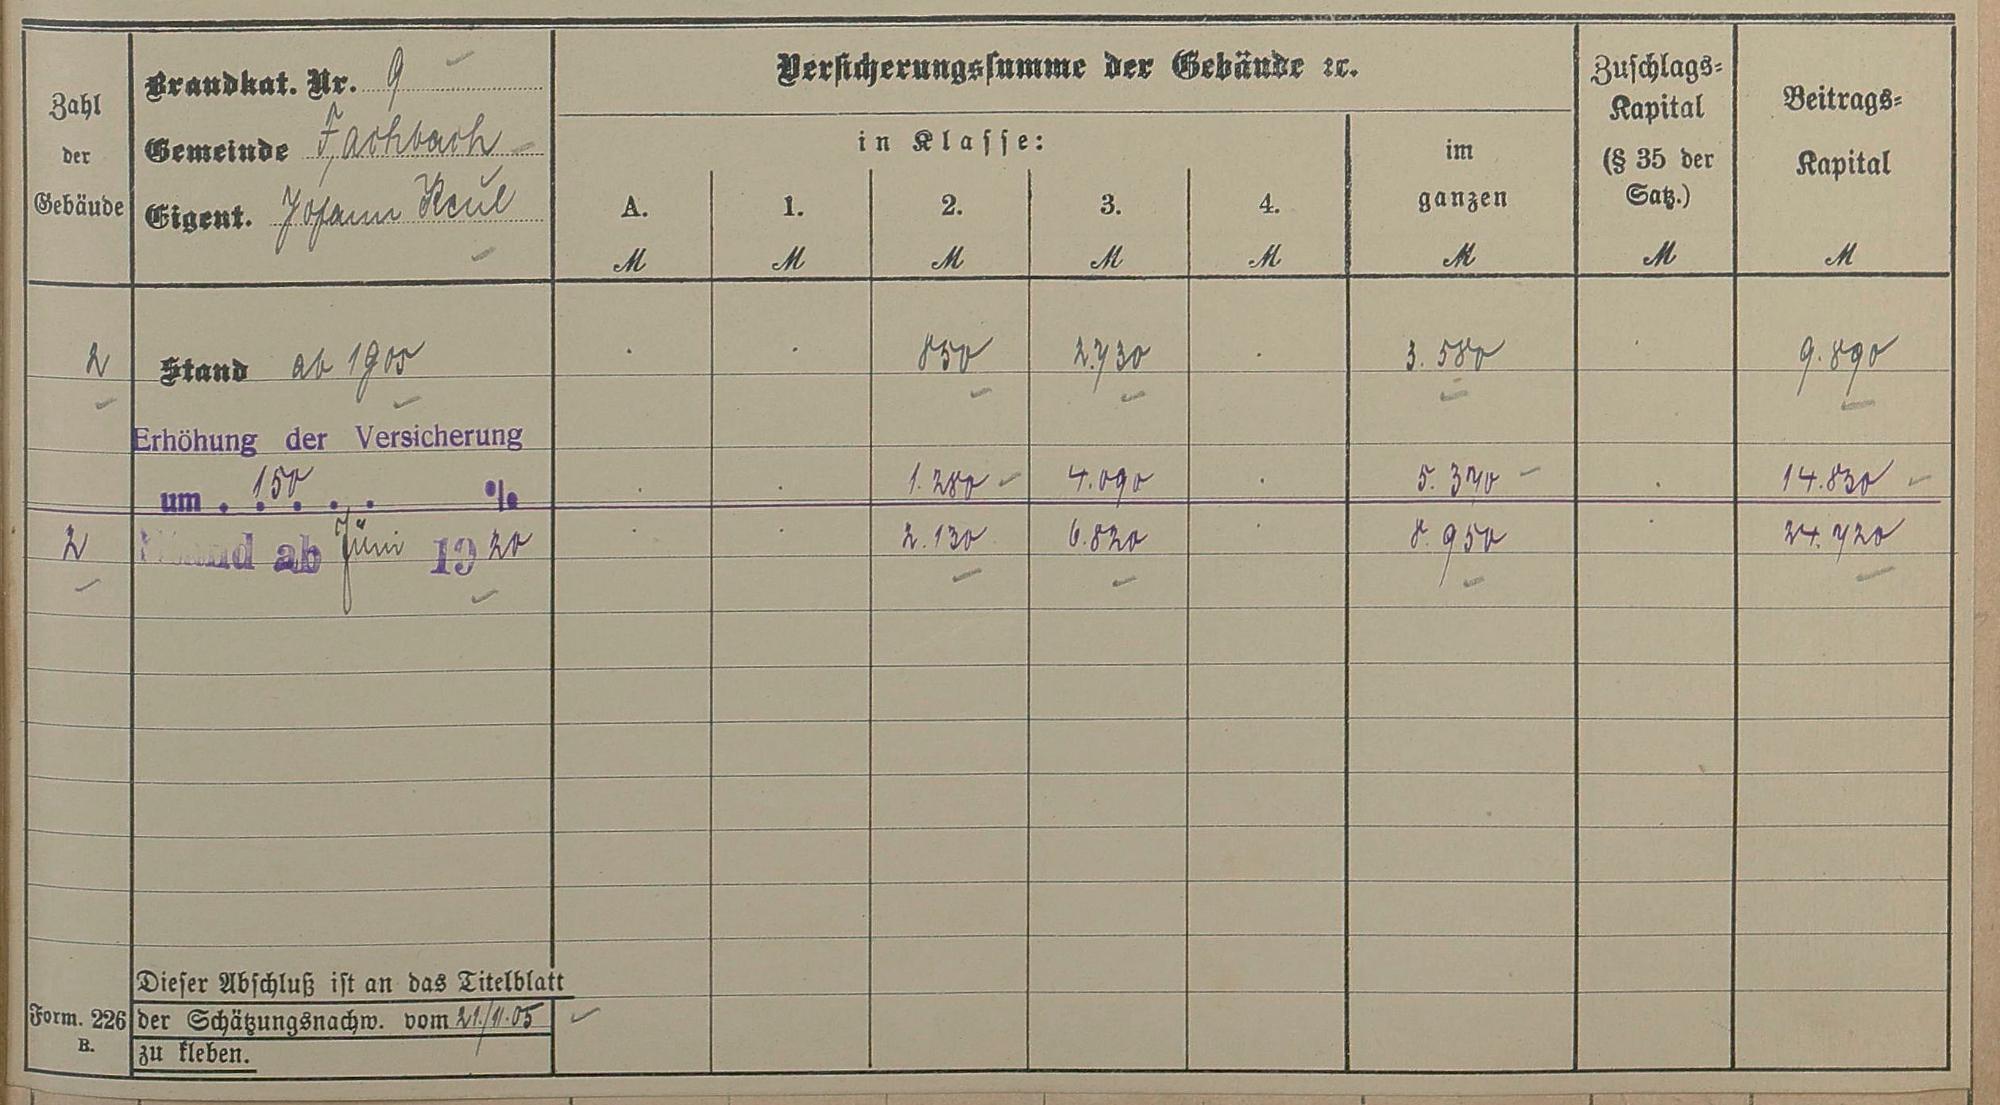 Zahl
der
Gebäude
Brandkat. Nr. 9
Gemeinde Fachbach
Eigent. Johann
Versicherungssumme der Gebäude ꝛc.
in Klasse:
A. 1. 2. 3. 4.
im
ganzen
M M M M M M
Zuschlags-
Kapital
(§ 35 der
Satz.)
M
Beitrags-
Kapital
M
2 Stand ab 1905 . . 850 2.730 . 3.580 . 9.890
Erhöhung der Versicherung
um . 150 . . . % . . 1.280 4.090 . 5.370 . 14.830
2 Stand ab Jŭni 1920 . . 2.130 6.820 . 8.950 . 24.720
Dieser Abschluß ist an das Titelblatt
Form. 226 der Schätzungsnachw. vom 21./11.05
B. zu kleben.